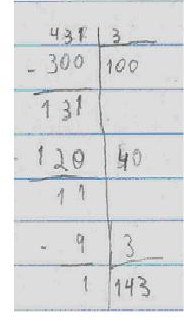 431 3
- 300 100
131
- 120 40
11
- 9 3
1 143